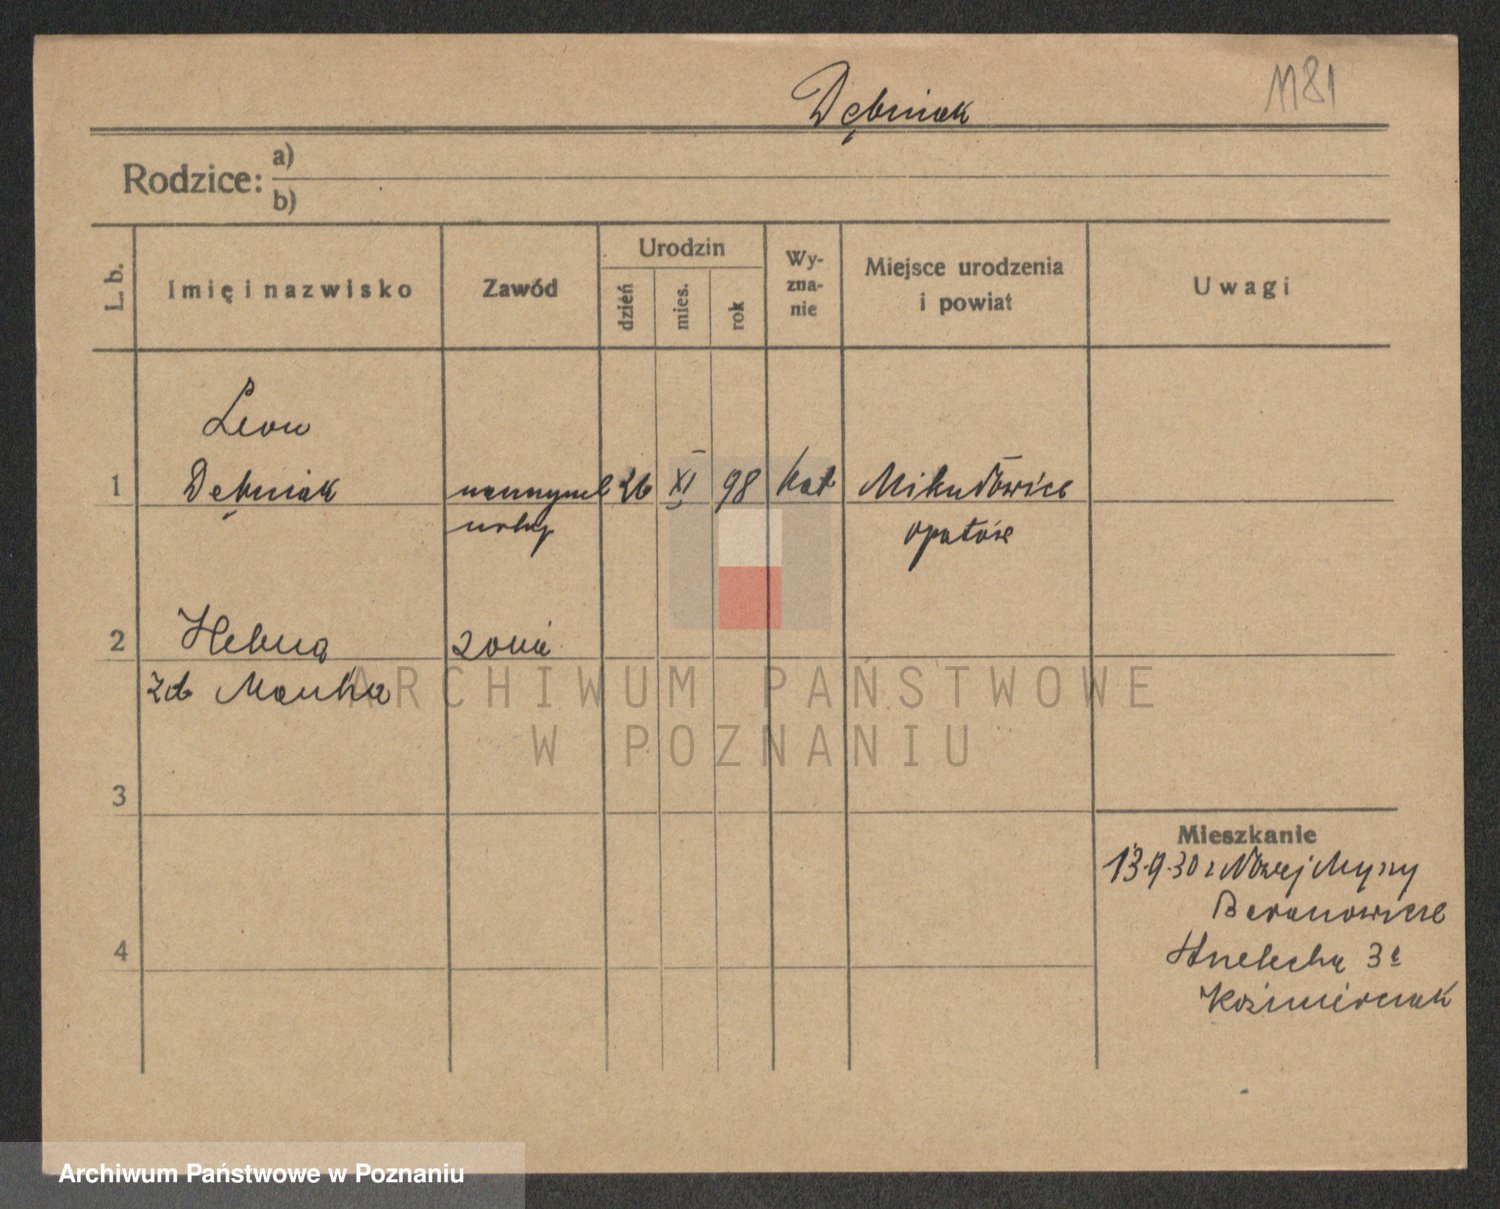 Dębniak
1181
Rodzice:
a)
b)
L. b.
Imię i nazwisko
Zawód
Urodzin
dzień
mies.
rok
Wy-
zna-
nie
Miejsce urodzenia
i powiat
Uwagi
Leon
1 Dębniak 26 XI 98 kat Mikułowice
Opatów
2 Helena żona
zd Mańka
ARCHIWUM PAŃSTWOWE
W POZNANIU
3
Mieszkanie
13.9.30 z Nowej
4
Archiwum Państwowe w Poznaniu